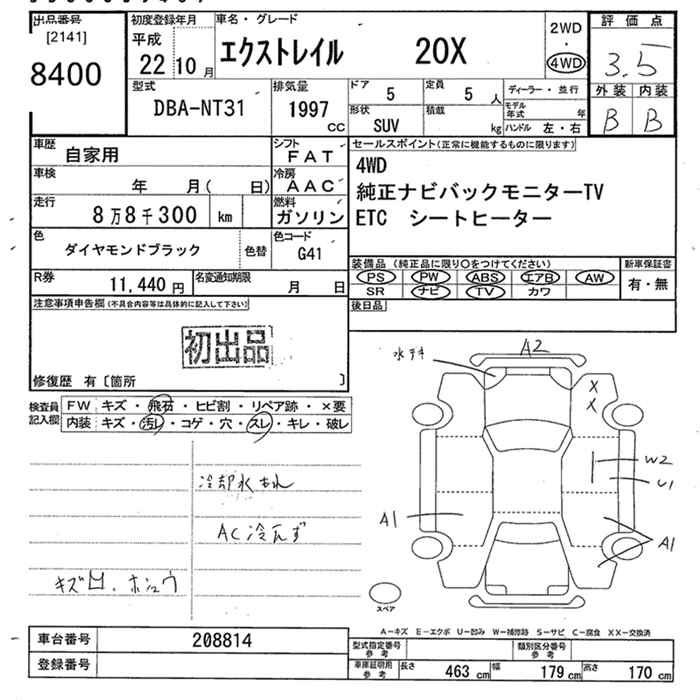 出品番号 初度登録年月 車名・グレード 2WD 評価点
[2141] 平成 エクストレイル 20X ・
8400 22年10月 4WD 3.5
型式 排気量 ドア 定員 ディーラー・並行 外装 内装
DBA-NT31 1997 cc 5 5人 モデル年式 年 B B
形状 積載 kg ハンドル 左・右
SUV
車歴 自家用 シフト FAT セールスポイント(正常に機能するものに限ります)
車検 年 月( 日) 冷房 AAC 4WD
走行 8万8千300 km 燃料 ガソリン 純正ナビバックモニターTV
ETC シートヒーター
色 ダイヤモンドブラック 色替 色コード G41
装備品(純正品に限り○をつけてください) 新車保証書
R券 11,440円 名変通知期限 月 日 PS PW ABS エアB AW 有・無
SR ナビ TV カワ
注意事項申告欄(不具合内容等は具体的に記入して下さい) 後日品
初出品
修復歴 有〔箇所 〕
検査員記入欄 FW キズ・飛石・ヒビ割・リペア跡・×要
内装 キズ・汚レ・コゲ・穴・スレ・キレ・破レ
水テキ A2
X
X
W2
U1
A1
A1
冷却水もれ
AC冷えず
キズ凹、ホシュウ
スペア
A－キズ E－エクボ U－凹み W－補修跡 S－サビ C－腐食 XX－交換済
車台番号 208814 型式指定番号 参考 類別区分番号 参考
登録番号 車庫証明用 参考 長さ 463 cm 幅 179 cm 高さ 170 cm